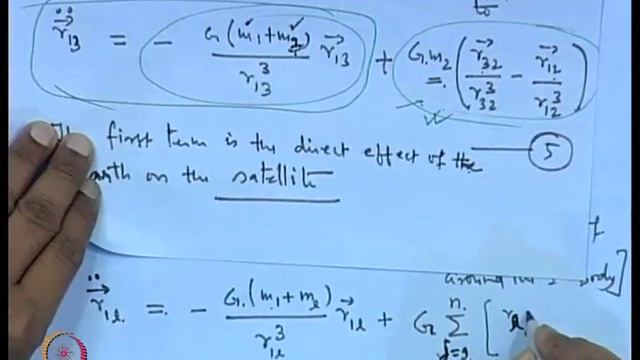 to
r̈₁₃ = - G(m₁+m₃)/r₁₃³ r⃗₁₃ + G.m₂ ( r⃗₃₂/r₃₂³ - r⃗₁₂/r₁₂³ )
first term is the direct effect of the 5
arth on the satellite
around m body]
r̈₁ₗ = - G.(m₁+mₗ)/r₁ₗ³ r⃗₁ₗ + G Σ n j=2 [ r